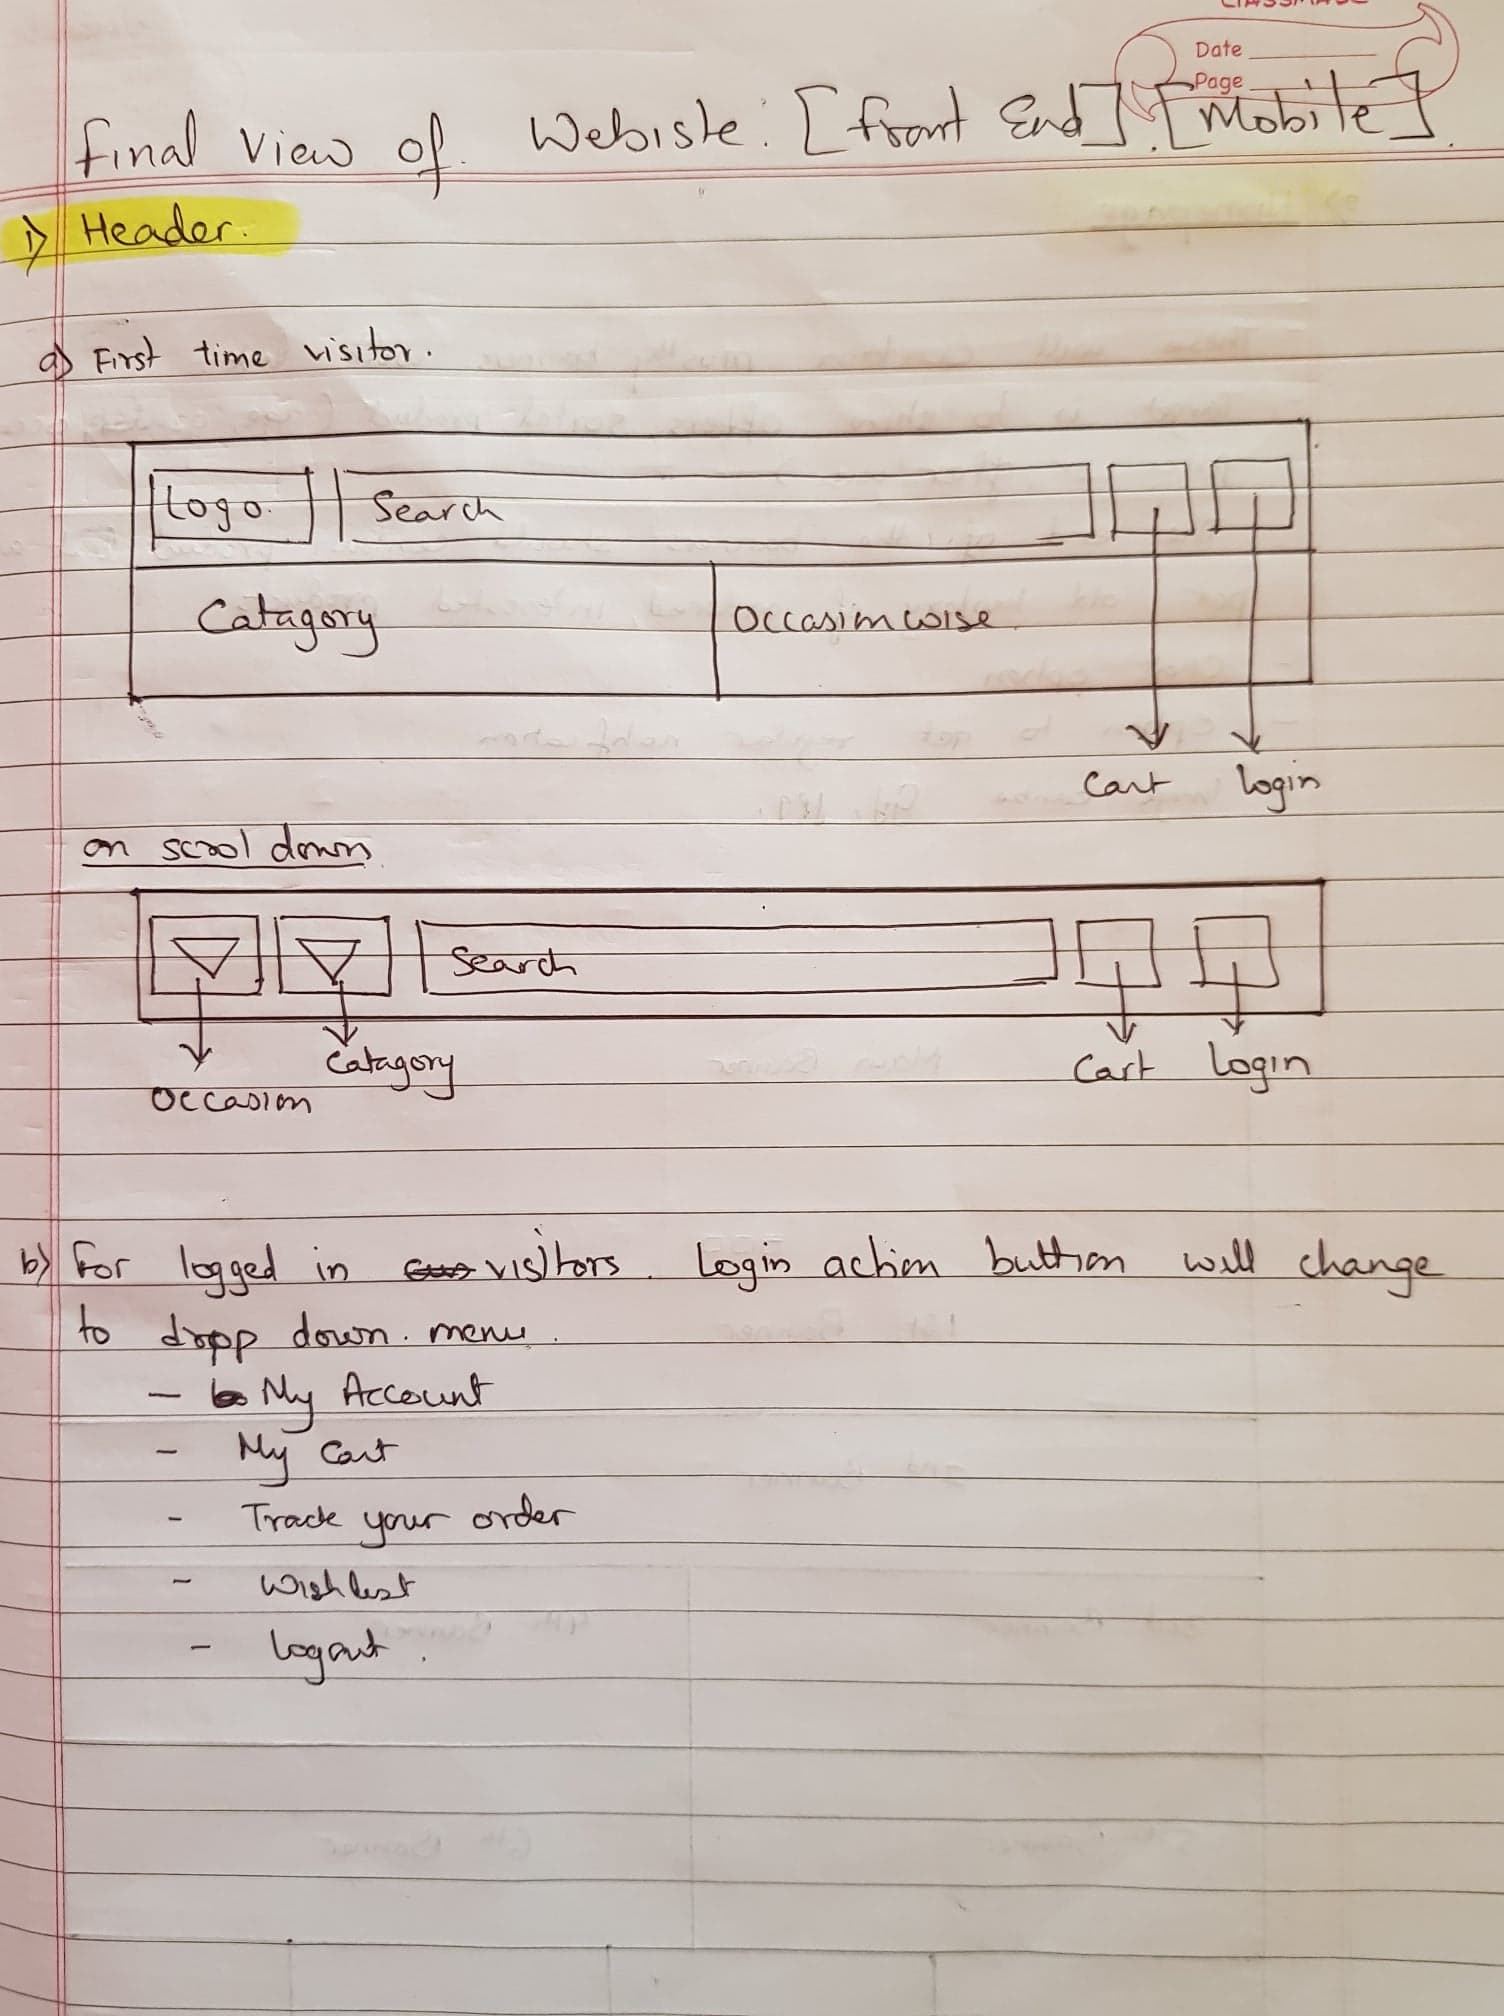 Date
Page
Final View of Webiste: [Front End]. [Mobile].
1) Header.
a) First time visitor.
Logo. Search
Catagory Occasion wise
Cart login
on scrol down
Search
Catagory Cart Login
Occasion
b) For logged in visitors. Login action buttion will change
to dropp down. menu.
- My Account
- My Cart
- Track your order
- Wishlist
- logout.